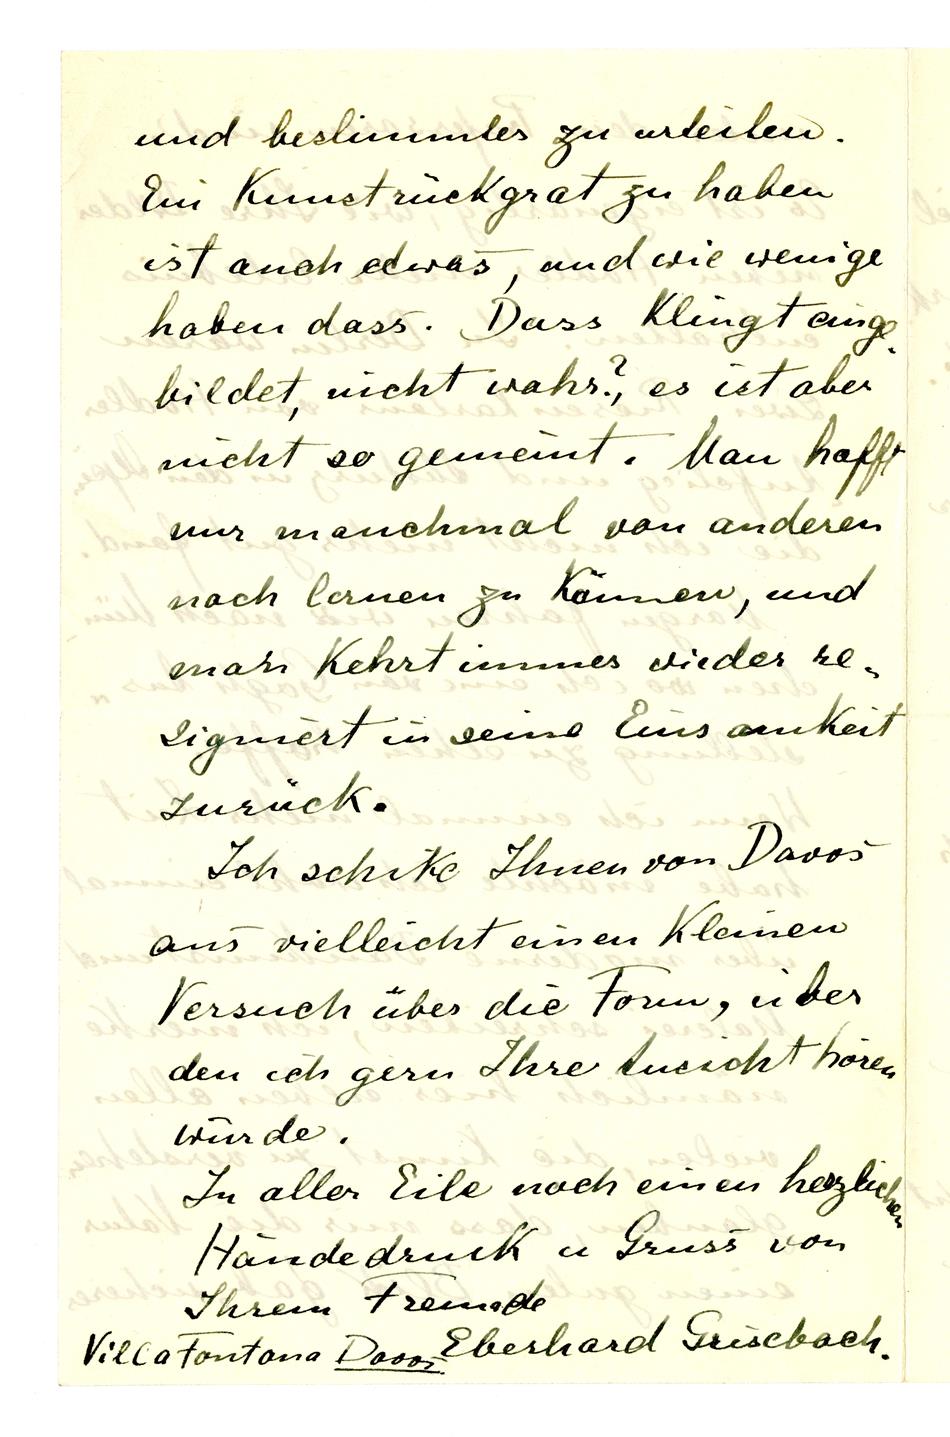 und bestimmter zu urteilen.
Ein Kunstrückgrat zu haben
ist auch etwas, und wie wenige
haben dass. Dass klingt einge-
bildet, nicht wahr?, es ist aber
nicht so gemeint. Man hofft
nur manchmal von anderen
noch lernen zu können, und
man kehrt immer wieder re-
signiert in seine Einsamkeit
zurück.
Ich schike Ihnen von Davos
aus vielleicht einen kleinen
Versuch über die Form, über
den ich gern Ihre Ansicht hören
würde.
In aller Eile noch einen herzlichen
Händedruck u Gruss von
Ihrem Freunde
Eberhard Grisebach.
Villa Fontana Davos.